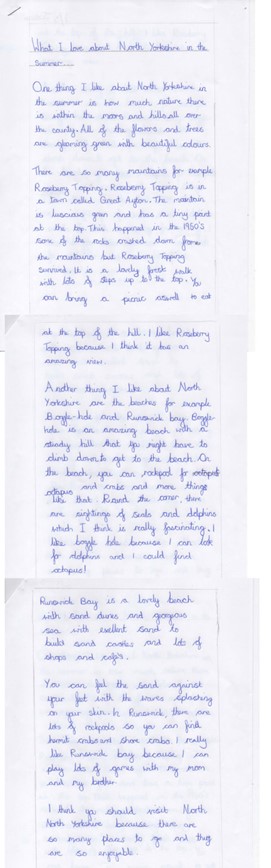 What I love about North Yorkshire in the
Summer...
One thing I like about North Yorkshire in
the summer is how much nature there
is within the moors and hills all over
the county. All of the flowers and trees
are gleaming green with beautiful colours.
There are so many mountains for example
Roseberry Topping. Roseberry Topping is in
a town called Great Ayton. The mountain
is luscious green and has a tiny part
at the top. This happened in the 1950's
some of the rocks crushed down from
the mountains but Roseberry Topping
survived. It is a lovely walk
with lots of steps up to the top. You
can bring a picnic aswell to eat
at the top of the hill. I like Roseberry
Topping because I think it has an
amazing view.
Another thing I like about North
Yorkshire are the beaches for example
Boggle-hole and Runswick bay. Boggle-
hole is an amazing beach with a
steady hill that you might have to
climb down to get to the beach. On
the beach, you can rockpool for
octopus and crabs and more things
like that. Round the corner, there
are sightings of seals and dolphins
which I think is really fascinating. I
like boggle hole because I can look
for dolphins and I could find
octopus!
Runswick Bay is a lovely beach
with sand dunes and gorgeous
sea with exellent sand to
build sand castles and lots of
shops and cafe's.
You can feel the sand against
your feet with the waves splashing
on your skin. In Runswick, there are
lots of rockpools so you can find
hermit crabs and shore crabs. I really
like Runswick bay because I can
play lots of games with my mom
and my brother.
I think you should visit North
North Yorkshire because there are
so many places to go and they
are so enjoyable.